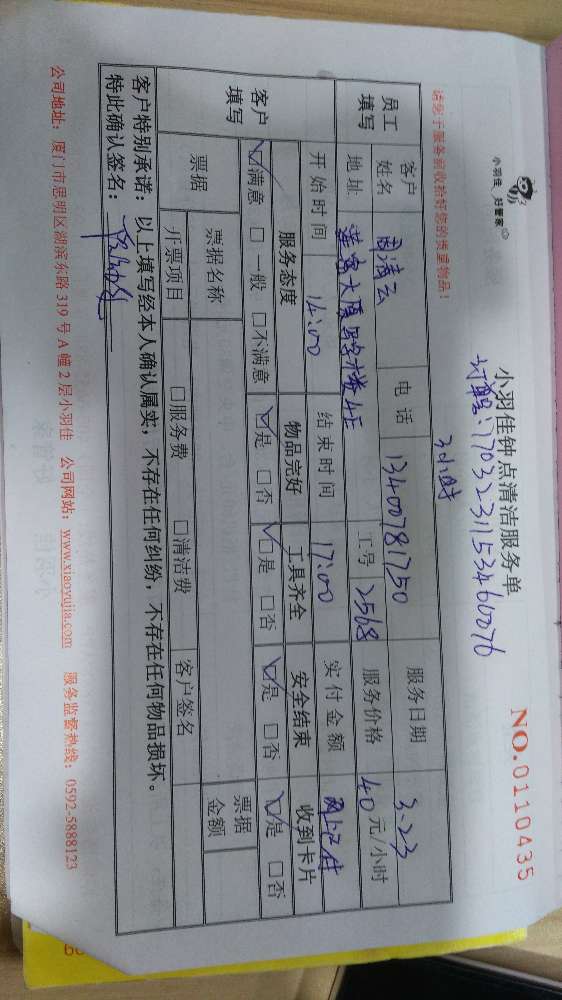 小羽佳 好管家
小羽佳钟点清洁服务单
NO.0110435
订单号:170323115346007b
请您于服务前收拾好您的贵重物品!
3小时
员工填写
客户姓名 周清云 电话 13400781750 服务日期 3.23
地址 莲富大厦写字楼4E 工号 2568 服务价格 40元/小时
开始时间 14:00 结束时间 17:00 实付金额
客户填写
服务态度 物品完好 工具齐全 安全结束 收到卡片
☑满意 □一般 □不满意 ☑是 □否 ☑是 □否 ☑是 □否 ☑是 □否
票据 票据名称 票据金额
开票项目 □服务费 □清洁费 客户签名
客户特别承诺:以上填写经本人确认属实,不存在任何纠纷,不存在任何物品损坏。
特此确认签名:
公司地址:厦门市思明区湖滨东路319号A幢2层小羽佳 公司网站:www.xiaoyujia.com 服务监督热线:0592-5888123